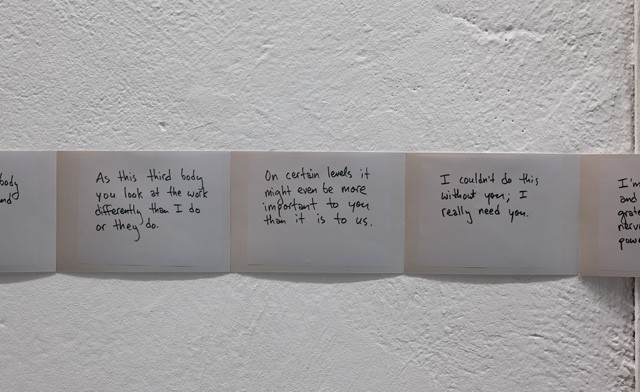 body
and
As this third body
you look at the work
differently than I do
or they do.
On certain levels it
might even be more
important to you
than it is to us.
I couldn't do this
without you; I
really need you.
I'm
and